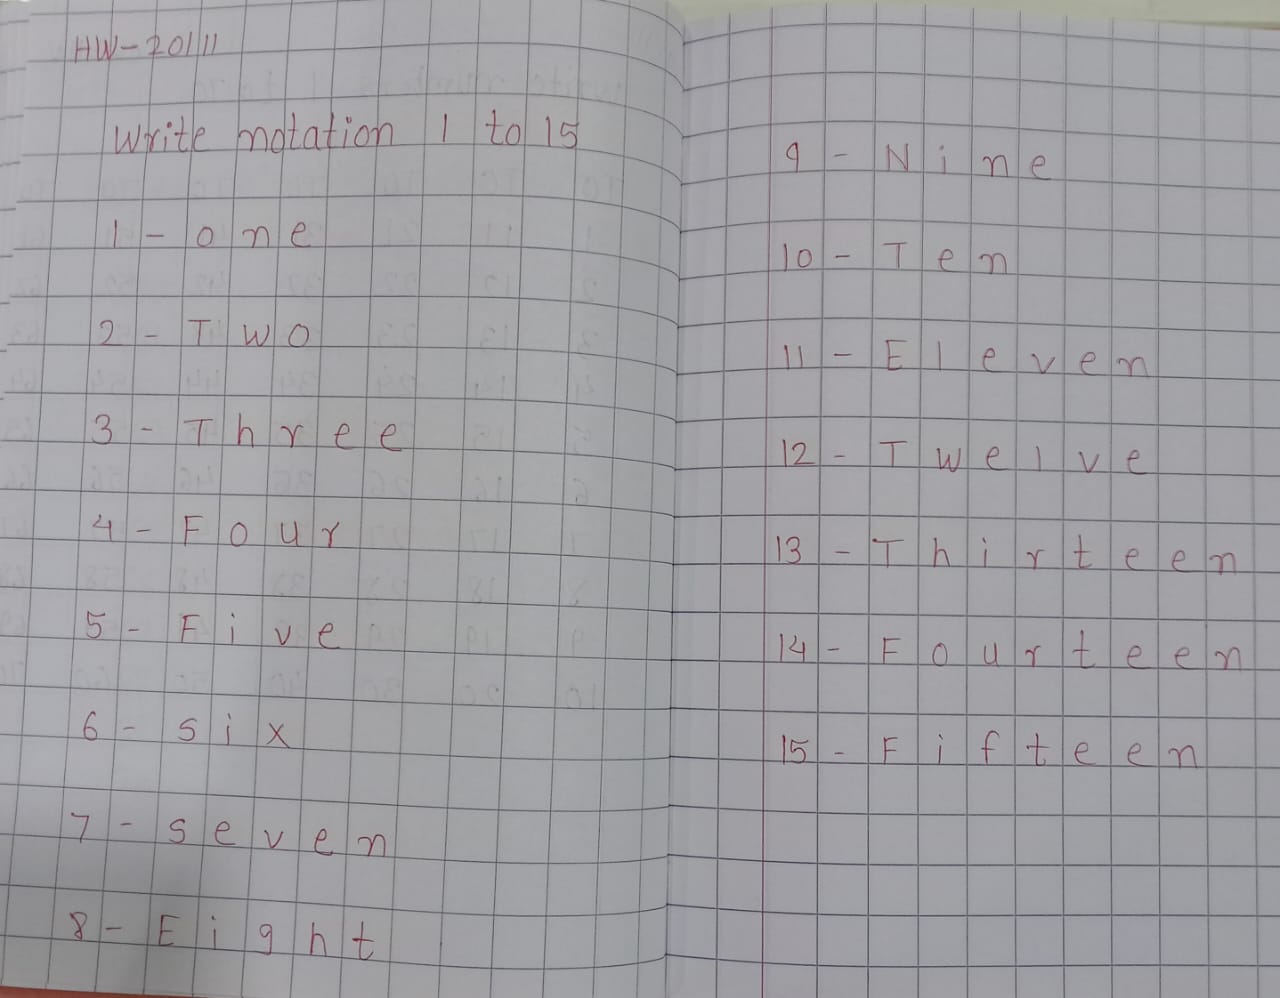 HW-20/11
Write notation 1 to 15
1 - one
2 - Two
3 - Three
4 - Four
5 - Five
6 - six
7 - seven
8 - Eight
9 - Nine
10 - Ten
11 - Eleven
12 - Twelve
13 - Thirteen
14 - Fourteen
15 - Fifteen